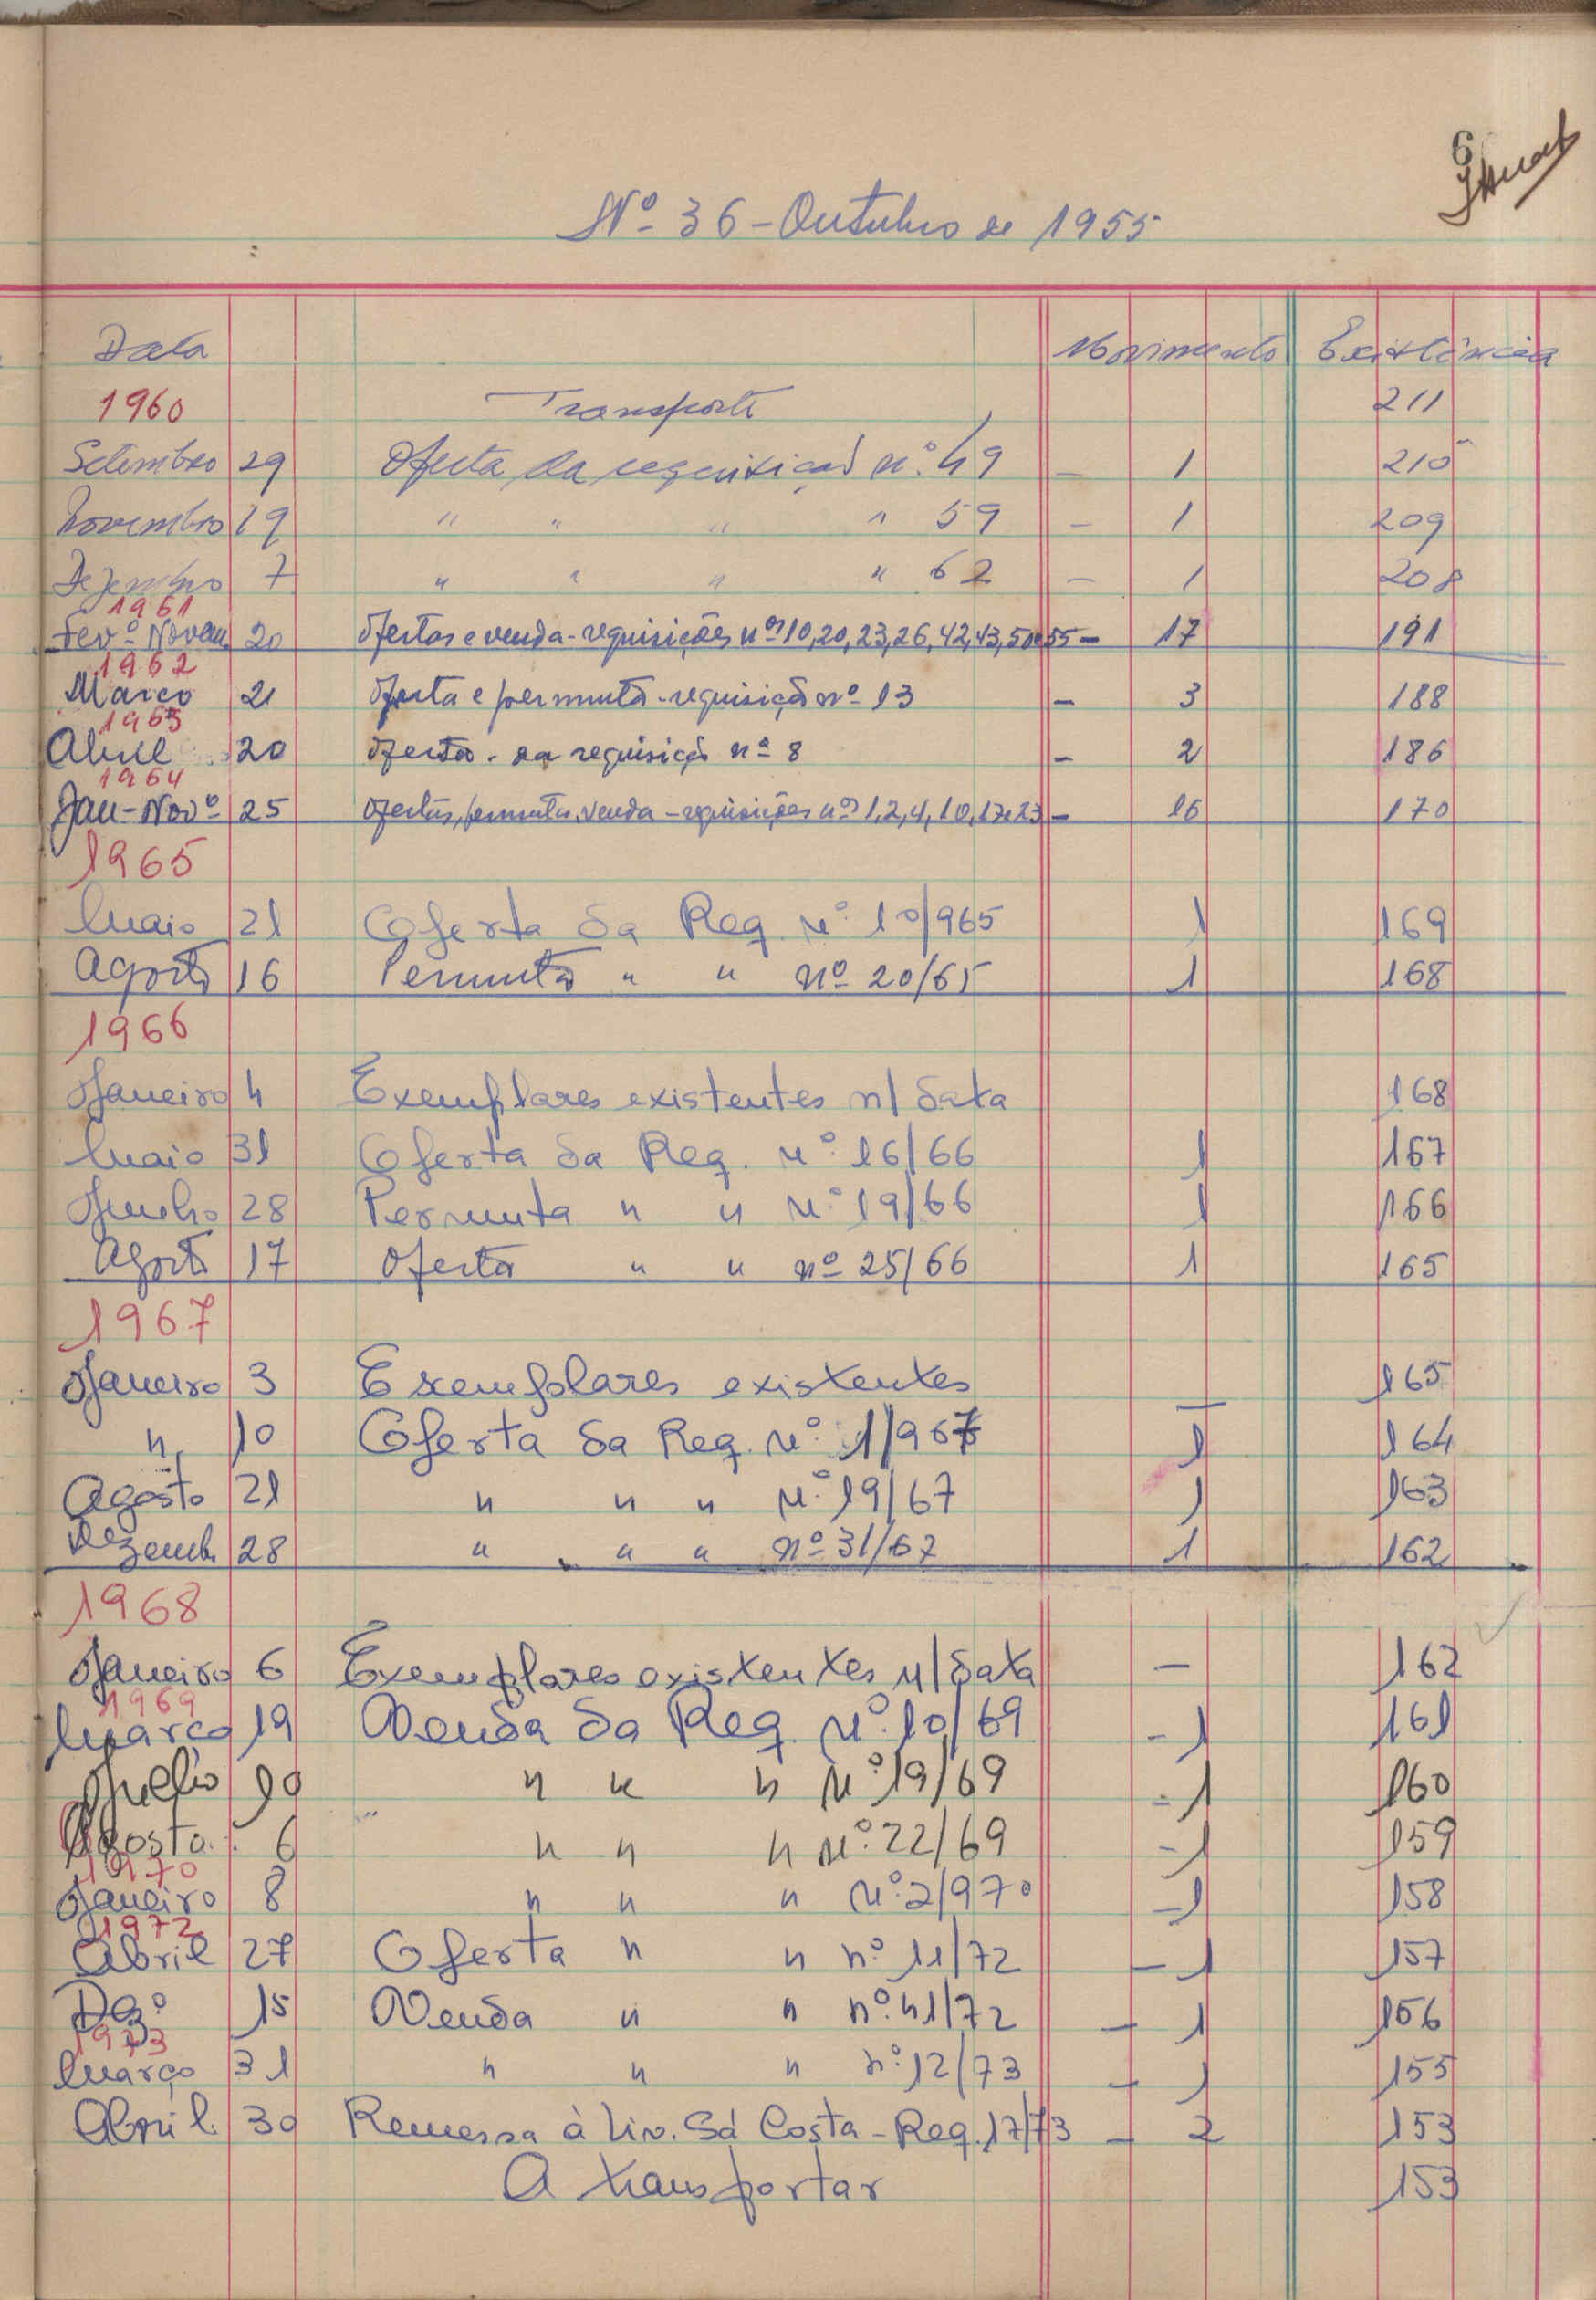 6
Nº 36 - Outubro de 1955
Data Movimento Existência
1960 Transporte 211
Setembro 29 Oferta da requisição nº 49 - 1 210
Novembro 19 " " " " 59 - 1 209
Dezembro 7 " " " " 62 - 1 208
1961
Fevº Novem. 20 Ofertas e venda - requisições nºs 10, 20, 23, 26, 42, 43, 50 e 55 - 17 191
1962
Março 21 Oferta e permuta - requisição nº 13 - 3 188
1963
Abril 20 Oferta - da requisição nº 8 - 2 186
1964
Jan-Novº 25 Ofertas, permutas, venda - requisições nºs 1, 2, 4, 10, 17 e 23 - 16 170
1965
Maio 21 Oferta da Req. nº 10/965 1 169
Agosto 16 Permuta " " nº 20/65 1 168
1966
Janeiro 4 Exemplares existentes n/ data 168
Maio 31 Oferta da Req. nº 16/66 1 167
Junho 28 Permuta " " nº 19/66 1 166
Agosto 17 Oferta " " nº 25/66 1 165
1967
Janeiro 3 Exemplares existentes — 165
" 10 Oferta da Req. nº 1/967 1 164
Agosto 21 " " " nº 19/67 1 163
Dezemb. 28 " " " nº 31/67 1 162
1968
Janeiro 6 Exemplares existentes n/ data — 162
1969
Março 19 Venda da Req. nº 10/69 - 1 161
Julho 10 " " " nº 19/69 - 1 160
Agosto 6 " " " nº 22/69 - 1 159
1970
Janeiro 8 " " " nº 2/970 - 1 158
1972
Abril 27 Oferta " " nº 11/72 - 1 157
Dezº 15 Venda " " nº 41/72 - 1 156
1973
Março 31 " " " nº 12/73 - 1 155
Abril 30 Remessa à Liv. Sá Costa - Req. 17/73 - 2 153
A transportar 153